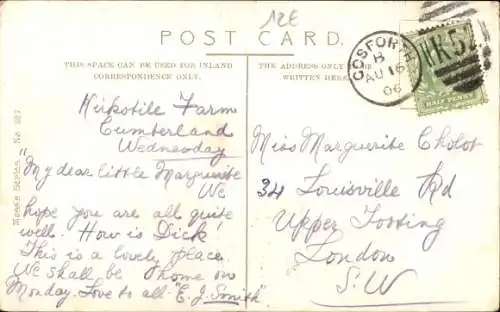 12E
POST CARD.
THIS SPACE CAN BE USED FOR INLAND
CORRESPONDENCE ONLY.
THE ADDRESS ONLY
WRITTEN HERE
GOSFORTH
B
AU 16
06
K52
HALF PENNY
Kirkstile Farm
Cumberland
Wednesday
"My dear little Marguerite
We
hope you are all quite
well. How is Dick?
This is a lovely place.
We shall be home on
Monday. Love to all "E. J. Smith"
Miss Marguerite Cholot
34 Louisville Rd
Upper Tooting
London
S.W
Series No 227